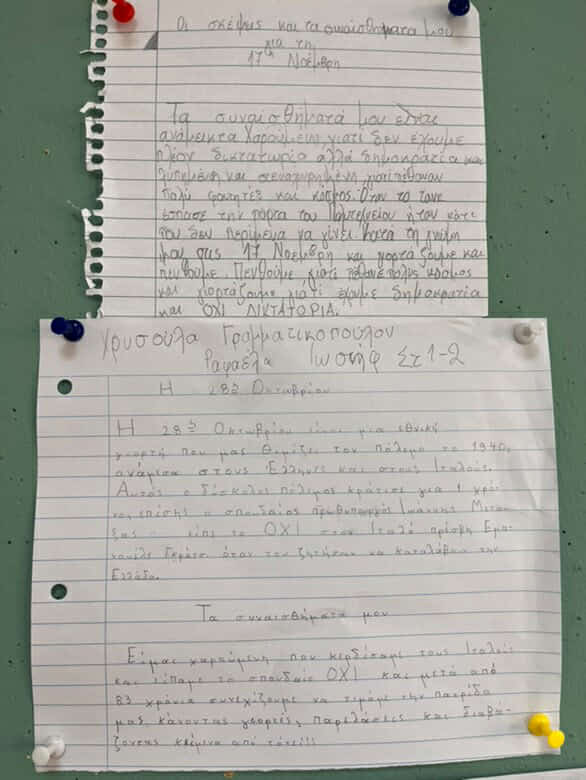 Οι σκέψεις και τα συναισθήματα μου
για τη
17η Νοέμβρη
Τα συναισθήματά μου είναι
ανάμεικτα Χαρούμενη γιατί δεν έχουμε
πλέον δικτατορία αλλά δημοκρατία και
λυπημένη και στεναχωρημένη γιατί πέθαναν
πολύ φοιτητές και κόσμος. Όταν το τανκ
έσπασε την πόρτα του Πολυτεχνείου ήταν κάτι
που δεν περίμενα να γίνει. Κατά τη γνώμη
μου στις 17 Νοέμβρη και γιορτάζουμε και
πενθούμε. Πενθούμε γιατί πέθανε πολύς κόσμος
και γιορτάζουμε γιατί έχουμε δημοκρατία
και ΟΧΙ ΔΙΚΤΑΤΟΡΙΑ.
Χρυσούλα Γραμματικοπούλου
Ραφαέλα Ιωσήφ Στ1-2
Η 28η Οκτωβρίου
Η 28η Οκτωβρίου είναι μια εθνική
γιορτή που μας θυμίζει τον πόλεμο το 1940,
ανάμεσα στους Έλληνες και στους Ιταλούς.
Αυτός ο δύσκολος πόλεμος κράτησε για 1 χρό-
νο, επίσης ο σπουδαίος πρωθυπουργός Ιωάννης Μετα-
ξάς είπε το ΟΧΙ στον Ιταλό πρέσβη Εμα-
νουέλε Γκράτσι όταν του ζήτησαν να καταλάβουν την
Ελλάδα.
Τα συναισθήματα μου
Είμαι χαρούμενη που κερδίσαμε τους Ιταλούς
και είπαμε το σπουδαίο ΟΧΙ και μετά από
83 χρόνια συνεχίζουμε να τιμάμε την πατρίδα
μας, κάνοντας γιορτές, παρελάσεις και διαβά-
ζοντας κείμενα από τότε!!!